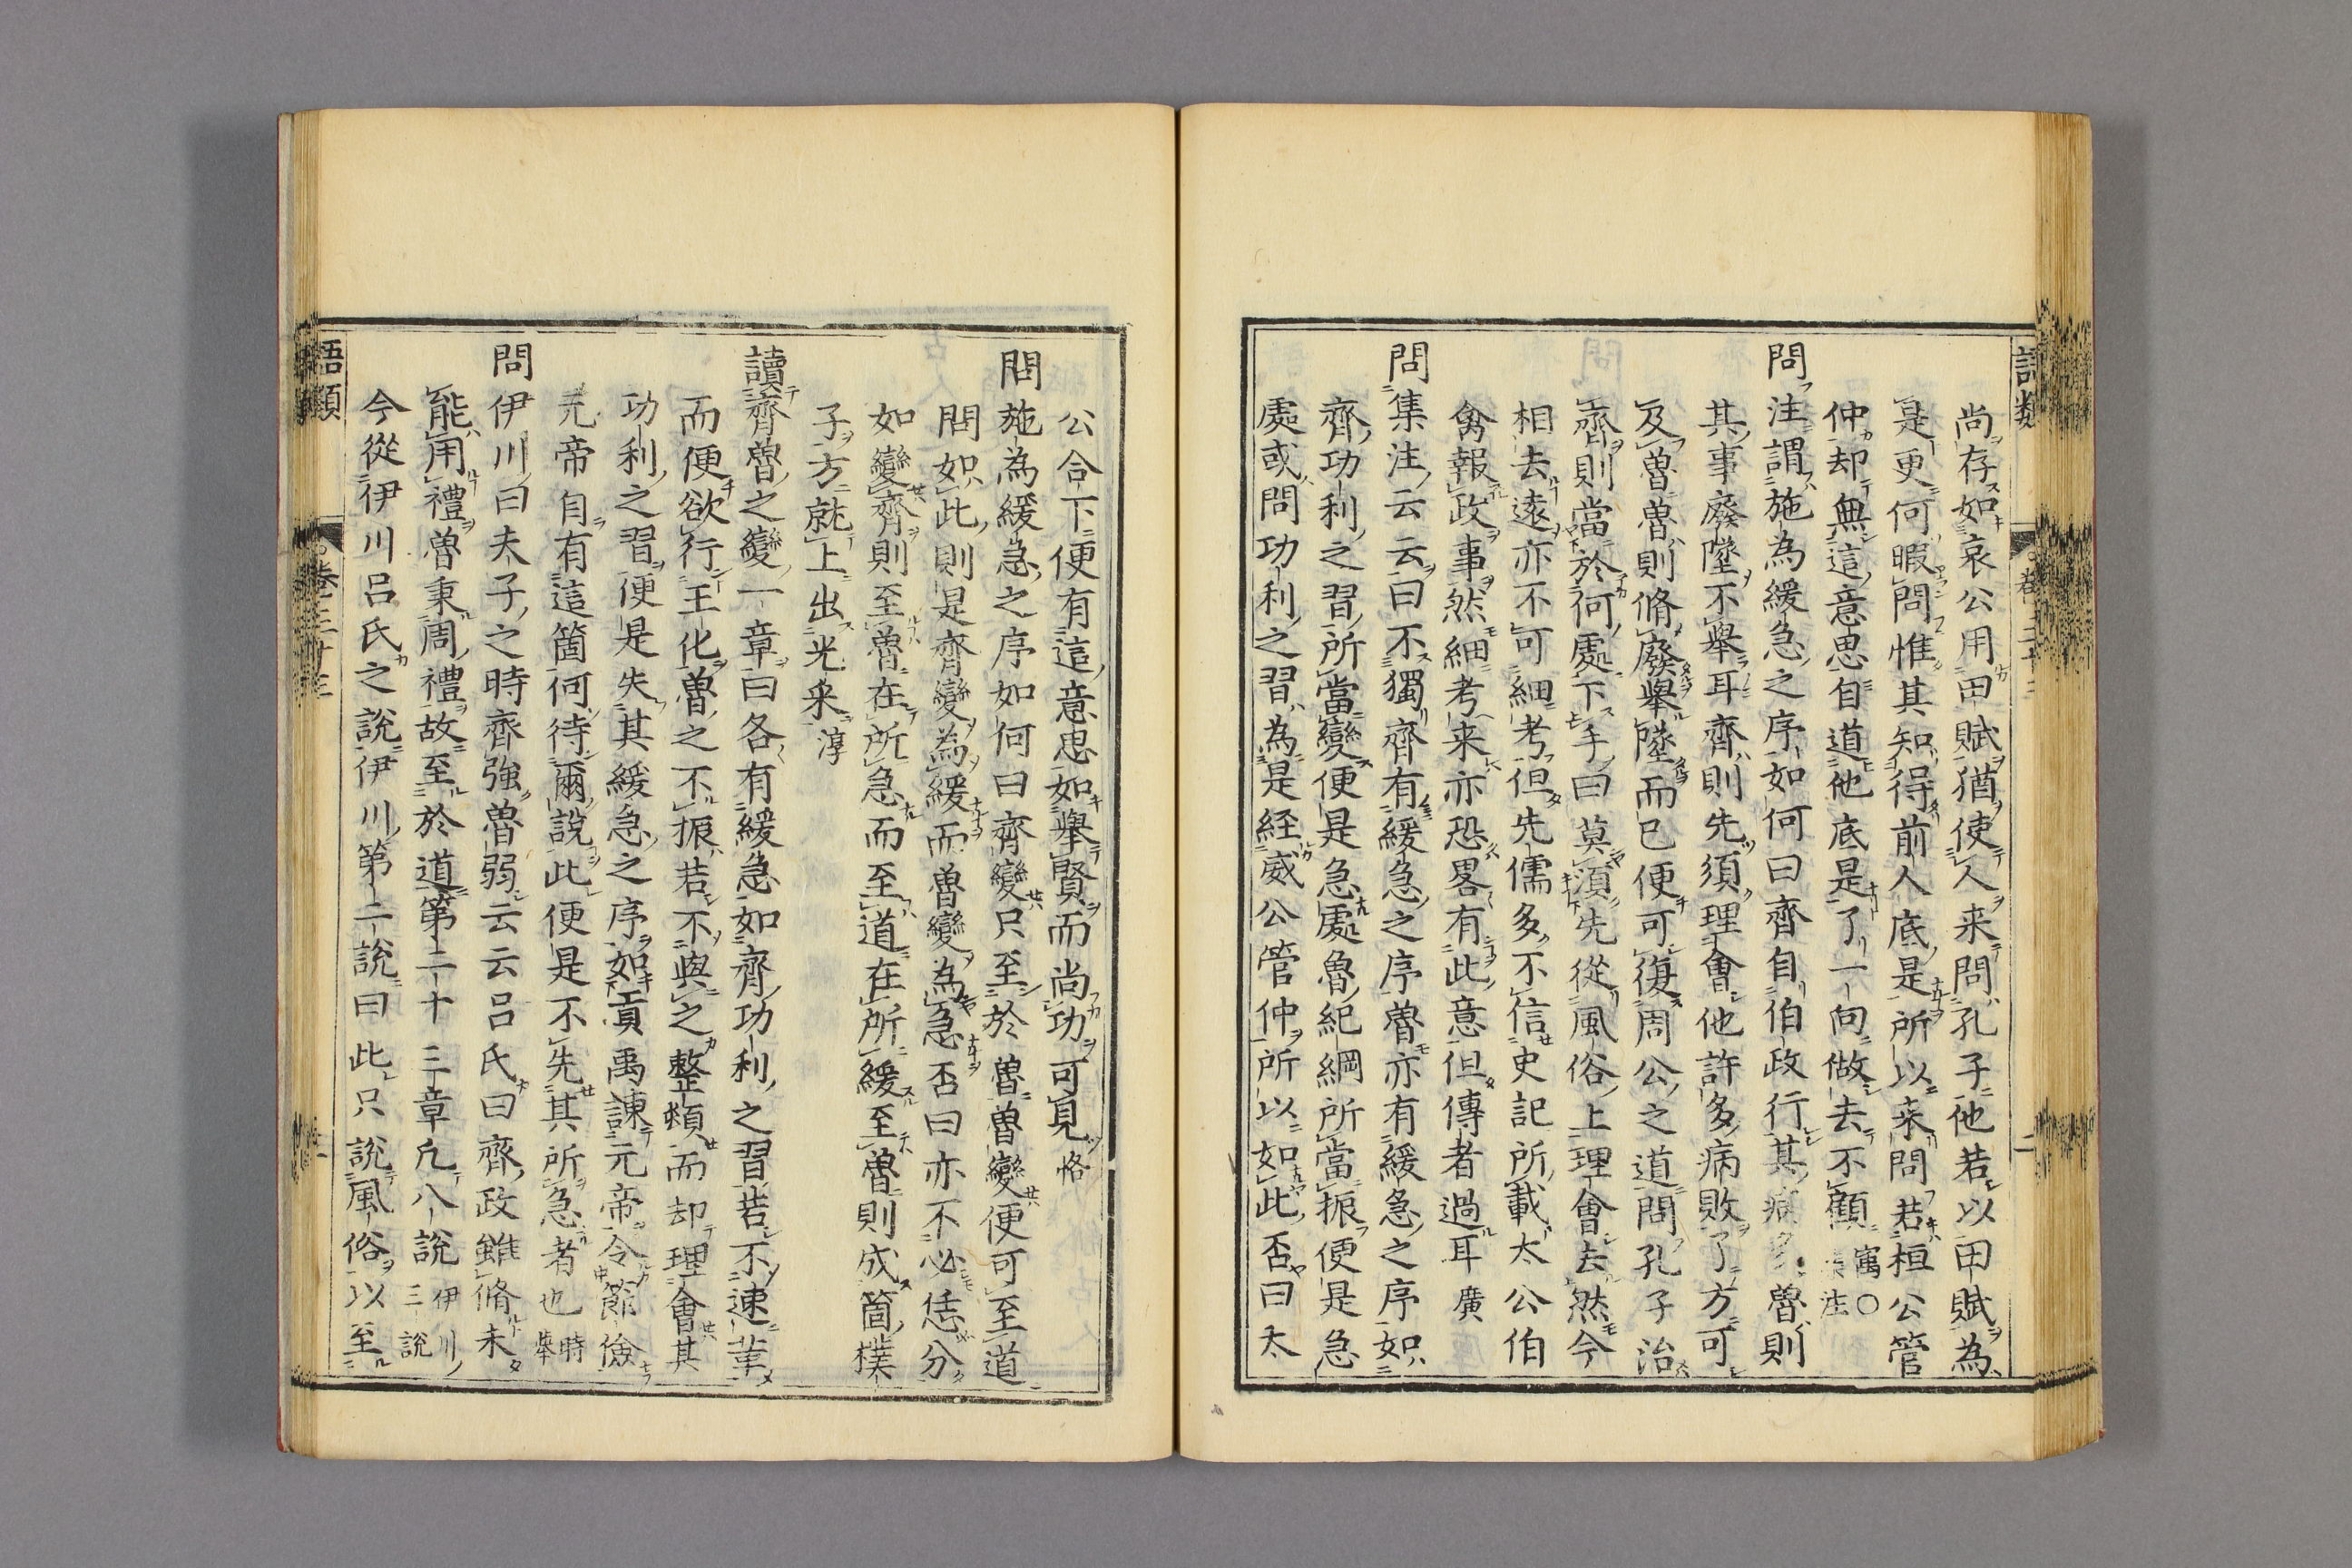 語類 卷三十三 二
尚存如哀公用田賦猶使人来問孔子他若以田賦為
是更何暇問惟其知得前人底是所以来問若桓公管
仲却無這意思自道他底是了一向做去不顧 㝢○ 集注
問注謂施為緩急之序如何曰齊自伯政行其病多魯則
其事廢墜不舉耳齊則先須理會他許多病敗了方可
及魯魯則脩廢舉墜而已便可復周公之道問孔子治
齊則當於何處下手曰莫須先從風俗上理會去然今
相去遠亦不可細考但先儒多不信史記所載太公伯
禽報政事然細考来亦恐畧有此意但傳者過耳 廣
問集注云云曰不獨齊有緩急之序魯亦有緩急之序如
齊功利之習所當變便是急處魯紀綱所當振便是急
處或問功利之習為是経威公管仲所以如此否曰太
公合下便有這意思如舉賢而尚功可見 恪
問施為緩急之序如何曰齊變只至於魯魯變便可至道
問如此則是齊變為緩而魯變為急否曰亦不必恁分
如變齊則至魯在所急而至道在所緩至魯則成箇樸
子方就上出光采 淳
讀齊魯之變一章曰各有緩急如齊功利之習若不速革
而便欲行王化魯之不振若不與之整頓而却理會其
功利之習便是失其緩急之序如貢禹諌元帝令節儉
元帝自有這箇何待爾說此便是不先其所急者也 時舉
問伊川曰夫子之時齊強魯弱云云吕氏曰齊政雖脩未
能用禮魯秉周禮故至於道第二十三章凡八說 伊川三說
今從伊川吕氏之說伊川第二說曰此只說風俗以至
語類 卷三十三